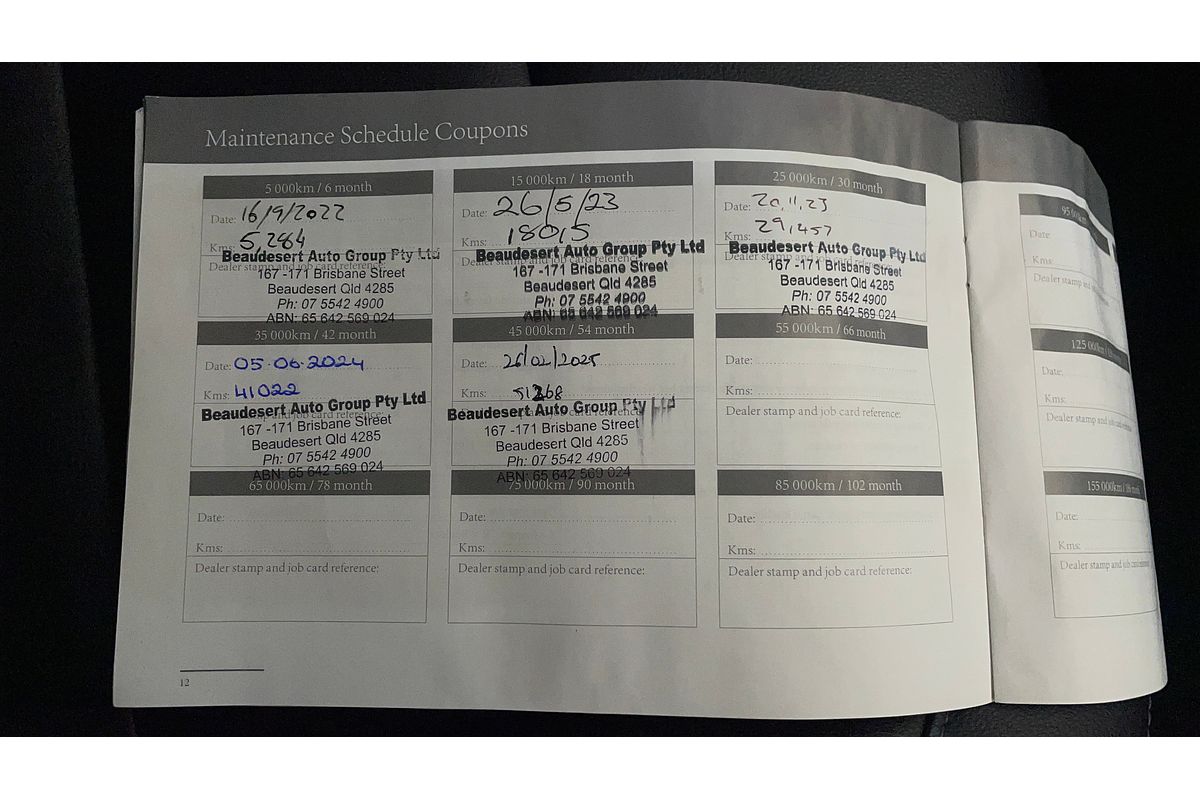 Maintenance Schedule Coupons
5 000km / 6 month
Date: 16/9/2022
Kms: 5,284
Dealer stamp and job card reference:
Beaudesert Auto Group Pty Ltd
167 -171 Brisbane Street
Beaudesert Qld 4285
Ph: 07 5542 4900
ABN: 65 642 569 024
15 000km / 18 month
Date: 26/5/23
Kms: 18015
Dealer stamp and job card reference:
Beaudesert Auto Group Pty Ltd
167 -171 Brisbane Street
Beaudesert Qld 4285
Ph: 07 5542 4900
ABN: 65 642 569 024
25 000km / 30 month
Date: 20.11.23
Kms: 29,457
Dealer stamp and job card reference:
Beaudesert Auto Group Pty Ltd
167 -171 Brisbane Street
Beaudesert Qld 4285
Ph: 07 5542 4900
ABN: 65 642 569 024
35 000km / 42 month
Date: 05.06.2024
Kms: 41022
Beaudesert Auto Group Pty Ltd
167 -171 Brisbane Street
Beaudesert Qld 4285
Ph: 07 5542 4900
ABN: 65 642 569 024
45 000km / 54 month
Date: 26/02/2025
Kms: 51268
Beaudesert Auto Group Pty Ltd
167 -171 Brisbane Street
Beaudesert Qld 4285
Ph: 07 5542 4900
ABN: 65 642 569 024
55 000km / 66 month
Date:
Kms:
Dealer stamp and job card reference:
65 000km / 78 month
Date:
Kms:
Dealer stamp and job card reference:
75 000km / 90 month
Date:
Kms:
Dealer stamp and job card reference:
85 000km / 102 month
Date:
Kms:
Dealer stamp and job card reference:
12
95 000km
Date
Kms:
Dealer stamp and
125 000km
Date:
Kms:
Dealer stamp and job card
155 000km
Date:
Kms:
Dealer stamp and job card